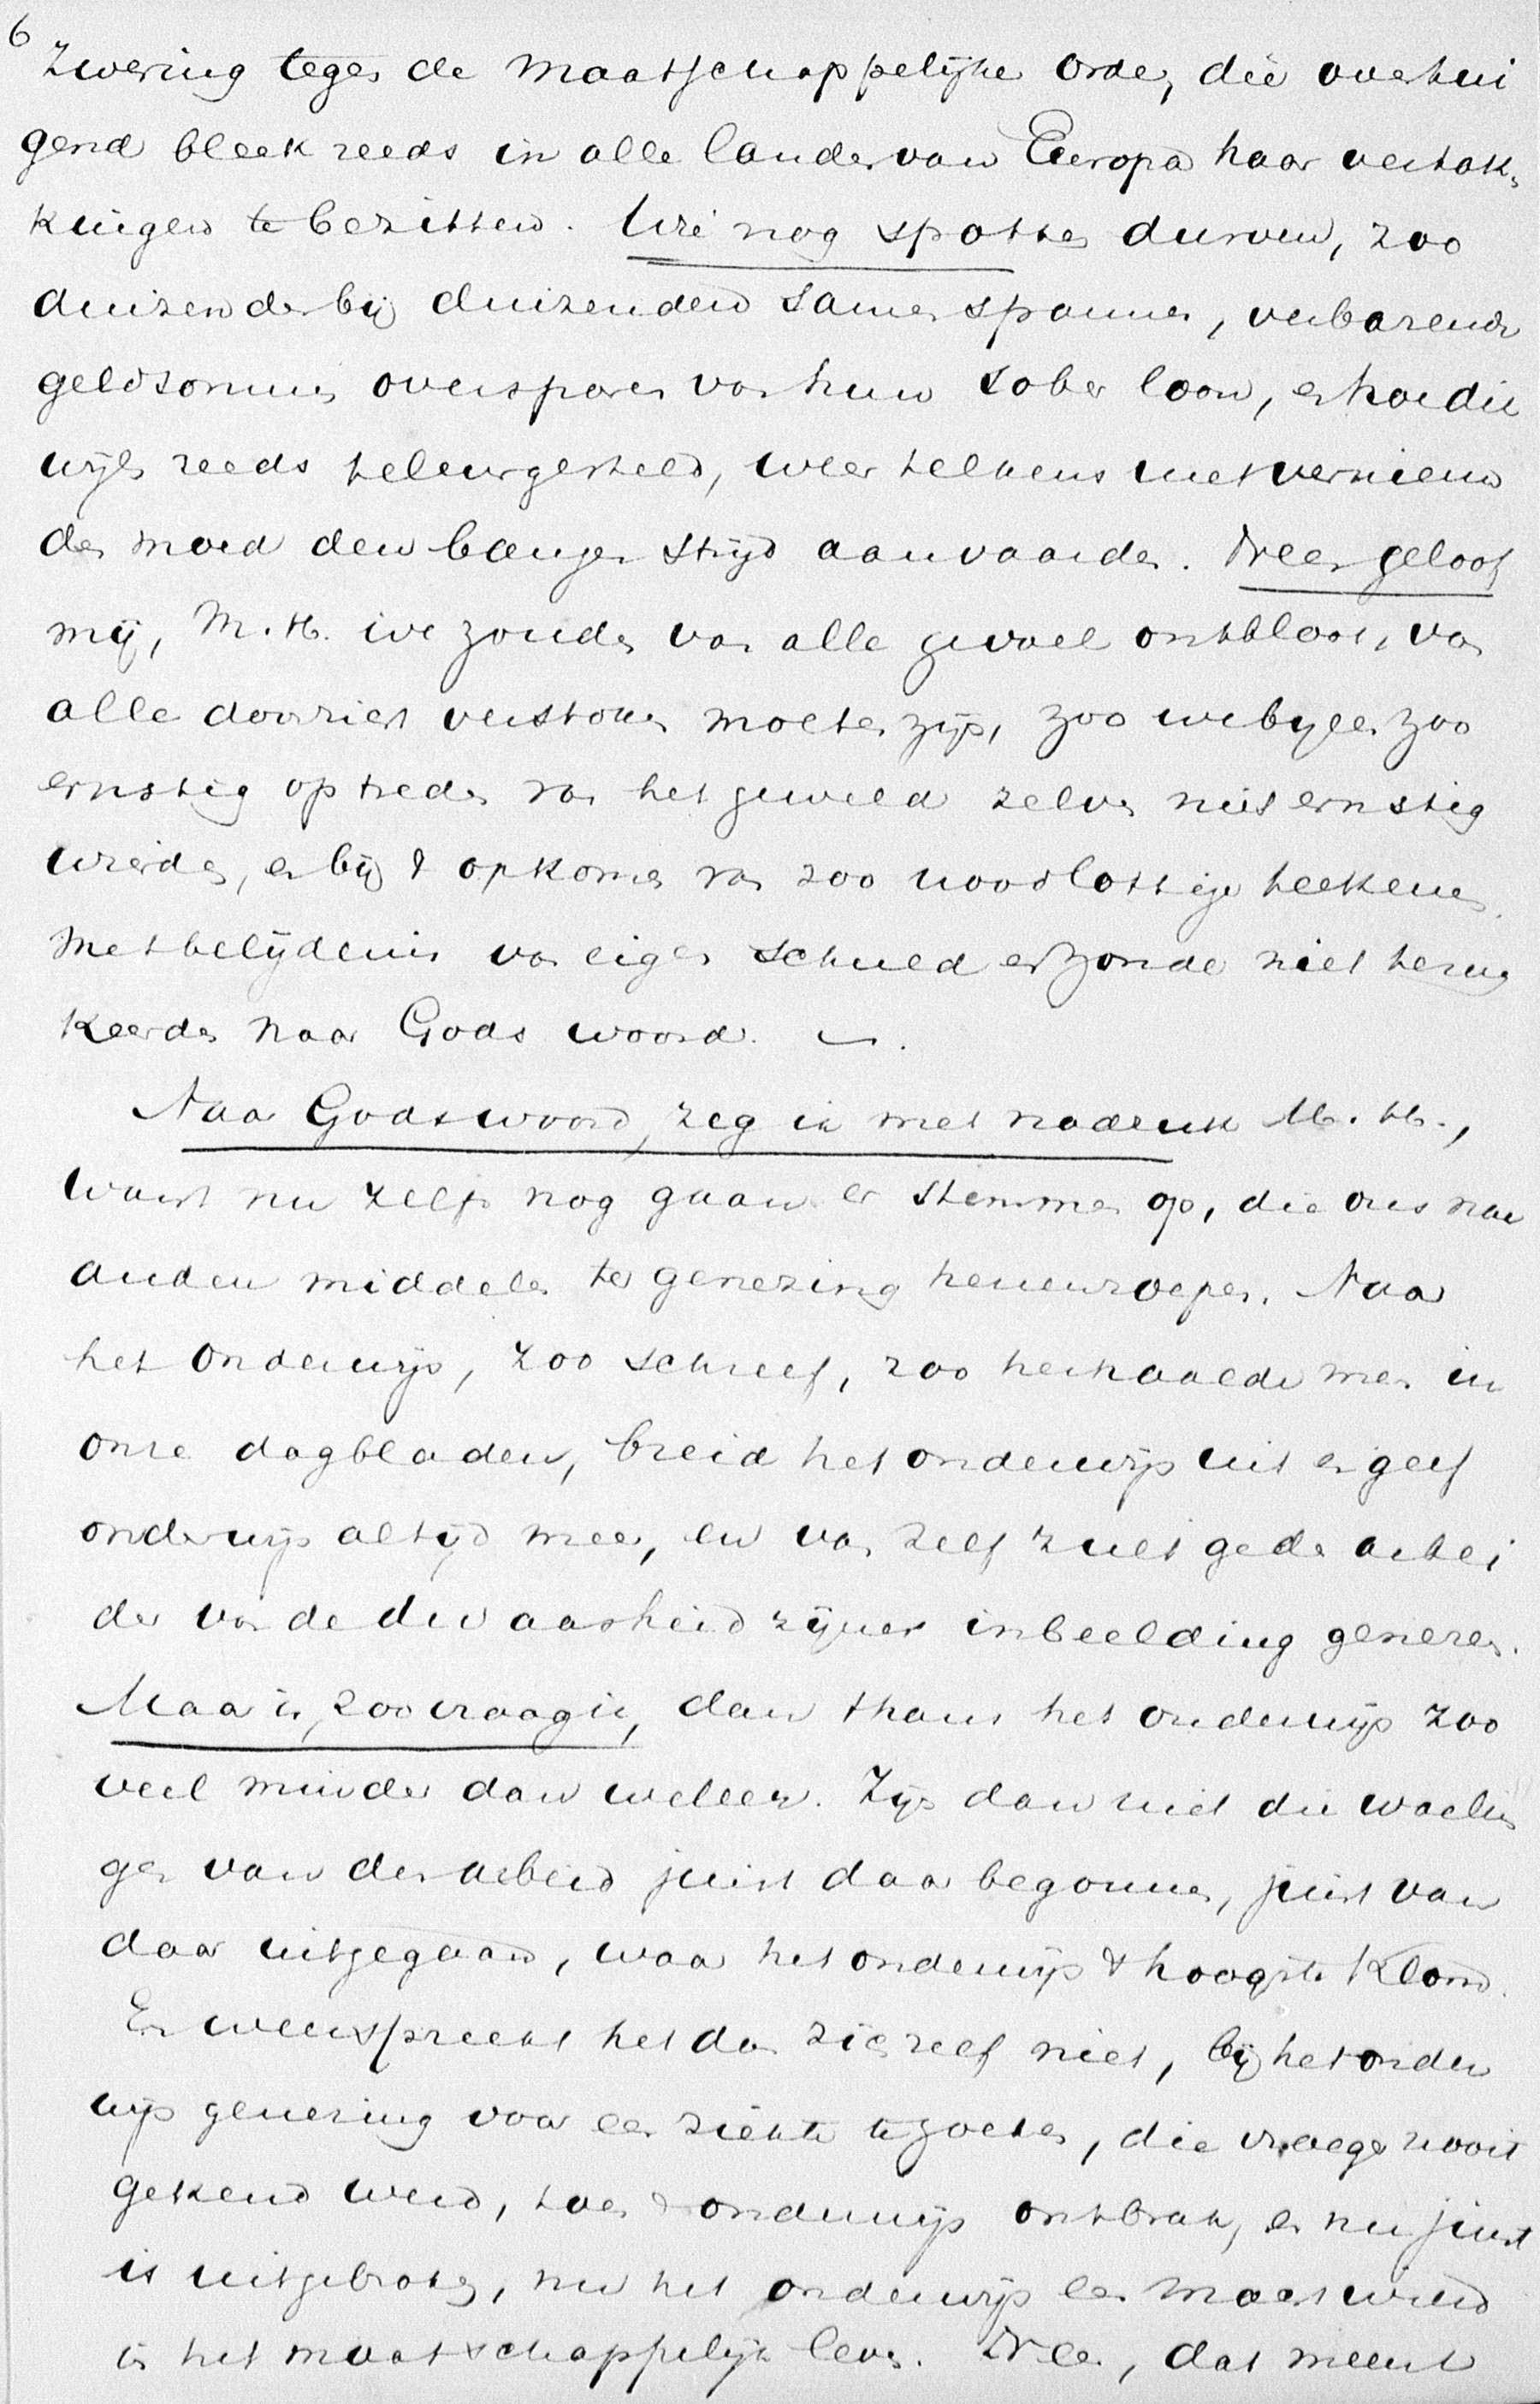 6
zwering tegen de maatschappelijke orde, die overtui
gend bleek reeds in alle landen van Europa haar vertak,
kingen te bezitten. Wie nog spotten durven, zoo
duizenden bij duizenden samenspannen, verbazende
geldsommen oversparen van hun sober loon, en hoe dik
wijls reeds teleurgesteld, weer telkens met vernieuw
den moed den bangen strijd aanvaarden. Neen geloof
mij, M. H. we zouden van alle gevoel ontbloot, van
alle doorzicht verstoken moeten zijn, zoo we bij een zoo
ernstig optreden van het geweld zelven niet ernstig
wierden, en bij 't opkomen van zoo noodlottige teekenen
met belijdenis van eigen schuld en zonde niet terug
keerden naar Gods woord. —.
Naar Gods woord, zeg ik met nadruk M. H.,
want nu zelfs nog gaan er stemmen op, die ons naar
andere middelen ter genezing henenroepen. Naar
het onderwijs, zoo schreef, zoo herhaalde men in
onze dagbladen, breid het onderwijs uit en geef
onderwijs altijd meer, en van zelf zult ge de arbei
der van de dwaasheid zijner inbeelding genezen.
Maar is, zoo vraag ik, dan thans het onderwijs zoo
veel minder dan weleer. Zijn dan niet die woelin
gen van den arbeid juist daar begonnen, juist van
daar uitgegaan, waar het onderwijs 't hoogste klom.
En weerspreekt het dan zich zelf niet, bij het onder
wijs genezing voor een ziekte te zoeken, die vroeger nooit
gekend werd, toen 't onderwijs ontbrak, en nu juist
is uitgebroken, nu het onderwijs een macht wierd
in het maatschappelijk leven. Neen, dat meent